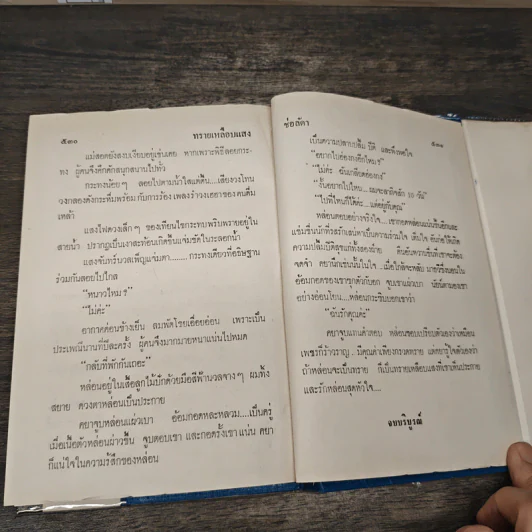 ๕๓๐ ทรายเหลือบแสง
แม่สอดยังสงบเงียบอยู่เช่นเคย หากเพราะพิธีลอยกระ-
ทง ผู้คนจึงคึกคักสนุกสนานไปทั่ว
กระทงน้อย ๆ ลอยไปตามน้ำใสแต่ตื้น....เสียงวงไทน
วงกลองดังกระหึ่มพร้อมกับการร้องเพลงรำวงเฮฮาของคนดื่ม
เหล้า
แสงไฟดวงเล็ก ๆ ของเทียนไขกระทบพริบพรายอยู่ใน
สายน้ำ ปรากฏเป็นเงาสะท้อนเกิดขึ้นแจ่มชัดในระลอกน้ำ
แสงจันทร์นวลเพ็ญแจ่มตา........กระทงเดียวที่อธิษฐาน
ร่วมกันลอยไปไกล
“หนาวไหม ?”
“ไม่ค่ะ”
อากาศค่อนข้างเย็น สมพัตโรยเอื่อยอ่อน เพราะเป็น
ประเพณีนานทีปีละครั้ง ผู้คนจึงมากมายหนาแน่นไปหมด
“กลับที่พักกันเถอะ”
หล่อนอยู่ในเสื้อลูกไม้ปักด้วยมือสีฟ้านวลจาง ๆ ผมทิ้ง
สยาย ดวงตาหล่อนเป็นประกาย
คยาจูบหล่อนแผ่วเบา อ้อมกอดหละหลวม....เป็นครู่
เมื่อเนื้อตัวหล่อนผ่าวขึ้น จูบตอบเขา และกอดรั้งเขาแน่น คยา
ก็แน่ใจในความรู้สึกของหล่อน
ช่อลัดา ๕๓๑
เป็นความปลาบปลื้ม ปีติ และพึงพอใจ
“อยากไปฮ่องกงอีกไหม ?”
“ไม่ค่ะ ฉันเกลียดฮ่องกง”
“งั้นอยากไปไหน....ผมจะลาพักสัก ๑๐ วัน”
“ไปที่ไหนก็ได้ค่ะ...แต่อยู่กับคุณ”
หล่อนตอบอย่างจริงใจ...เขากอดหล่อนแน่นขึ้นอีกและ
ความปลื้มปีติสุขแก่ทั้งสองฝ่าย คืนอันหวานชื่นที่เขาจะต้อง
จดจำ คยานึกเช่นนั้นในใจ
อย่างอ่อนโยน...หล่อนกระซิบบอกเขาว่า
“ฉันรักคุณค่ะ”
คยาจูบแทนคำตอบ หล่อนชอบเปรียบตัวเองว่าเหมือน
เพชรก็ร้าวราญ...มีคุณค่าเพียงกรวดทราย แต่คยารู้ใจตัวเองว่า
ถ้าหล่อนจะเป็นทราย ก็เป็นทรายเหลือบแสงที่เขาเห็นประกาย
และรักหล่อนสุดหัวใจ....
จบบริบูรณ์